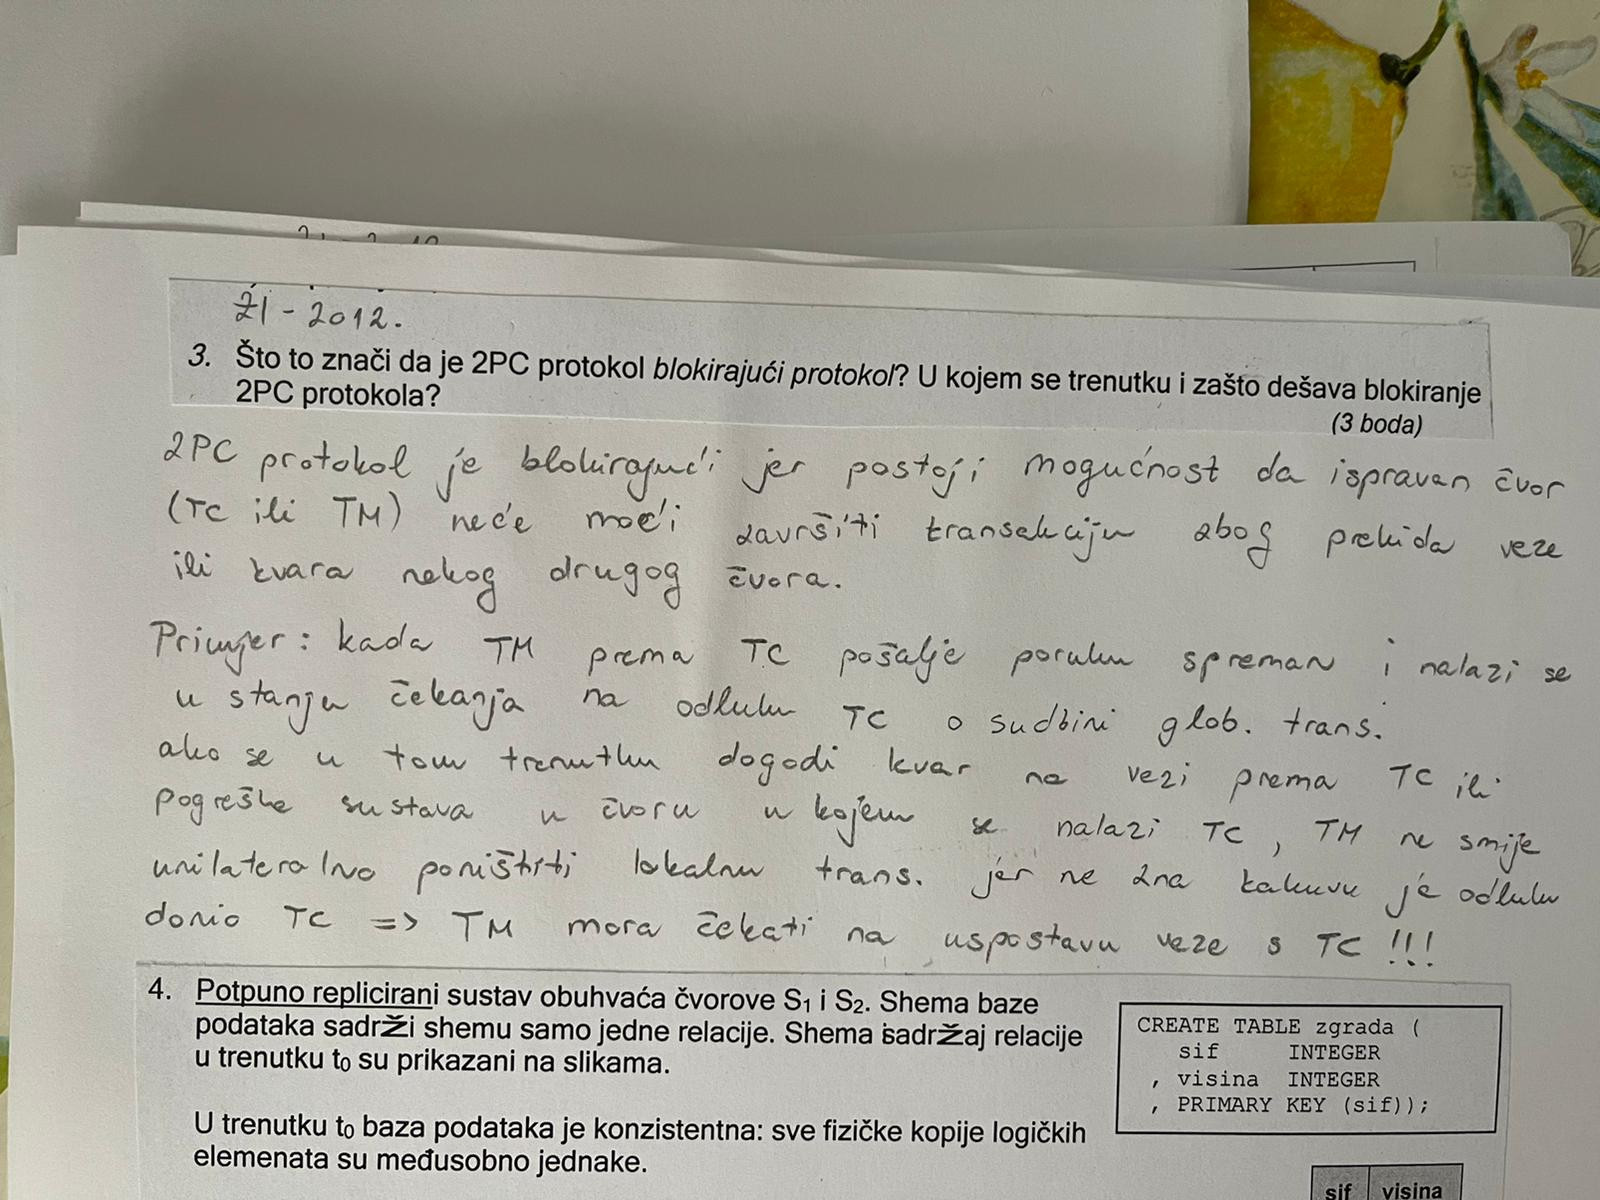 ŽI - 2012.
3. Što to znači da je 2PC protokol blokirajući protokol? U kojem se trenutku i zašto dešava blokiranje
2PC protokola?
(3 boda)
2PC protokol je blokirajući jer postoji mogućnost da ispravan čvor
(TC ili TM) neće moći završiti transakciju zbog prekida veze
ili kvara nekog drugog čvora.
Primjer: kada TM prema TC pošalje poruku spreman i nalazi se
u stanju čekanja na odluku TC o sudbini glob. trans.
ako se u tom trenutku dogodi kvar na vezi prema TC ili
pogreške sustava u čvoru u kojem se nalazi TC, TM ne smije
unilateralno poništiti lokalnu trans. jer ne zna kakvu je odluku
donio TC => TM mora čekati na uspostavu veze s TC !!!
4. Potpuno replicirani sustav obuhvaća čvorove S1 i S2. Shema baze
podataka sadrŽi shemu samo jedne relacije. Shema i sadrŽaj relacije
u trenutku t0 su prikazani na slikama.
U trenutku t0 baza podataka je konzistentna: sve fizičke kopije logičkih
elemenata su međusobno jednake.
CREATE TABLE zgrada (
sif INTEGER
, visina INTEGER
, PRIMARY KEY (sif));
sif visina